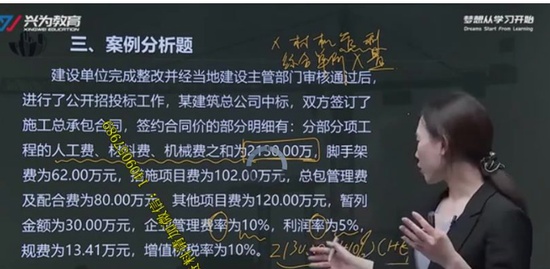 兴为教育
XINGWEI EDUCATION
梦想从学习开始
Dreams Start From Learning
三、案例分析题
建设单位完成整改并经当地建设主管部门审核通过后,
进行了公开招投标工作,某建筑总公司中标,双方签订了
施工总承包合同,签约合同价的部分明细有:分部分项工
程的人工费、材料费、机械费之和为2130.00万,脚手架
费为62.00万元,措施项目费为102.00万元,总包管理费
及配合费为80.00万元,其他项目费为120.00万元,暂列
金额为30.00万元,企业管理费率为10%,利润率为5%,
规费为13.41万元,增值税税率为10%。